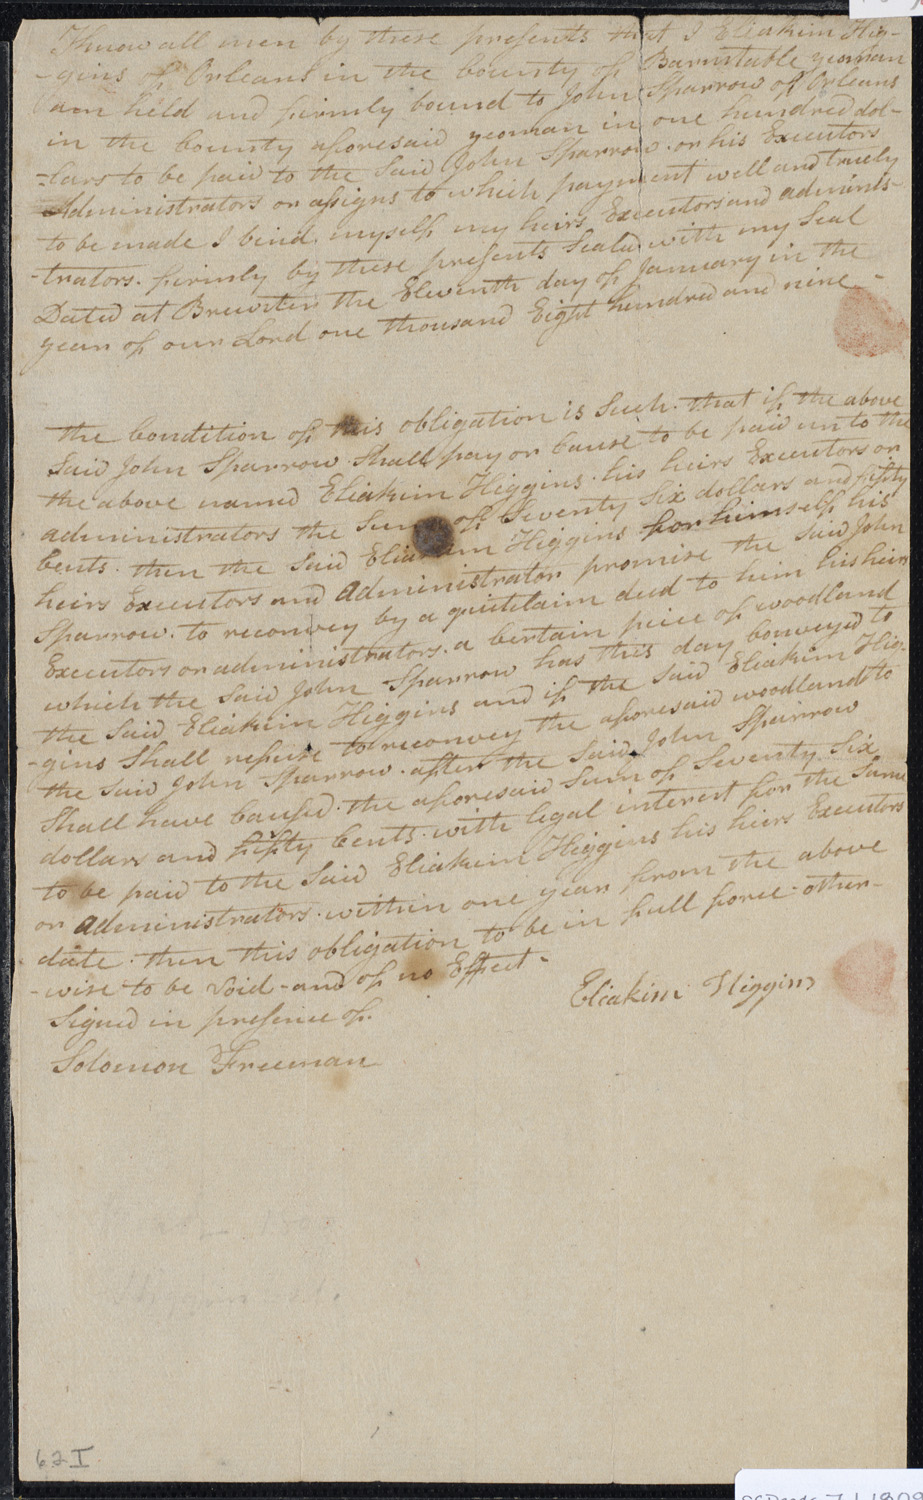 Know all men by these presents that I Eliakim Hig-
-gins of Orleans in the County of Barnstable yeoman
am held and firmly bound to John Sparrow of Orleans
in the County aforesaid yeoman in one hundred dol-
-lars to be paid to the Said John Sparrow. or his Executors
Administrators or assigns to which payment well and truely
to be made I bind myself my heirs Executors and adminis-
-trators. firmly by these presents Seald with my Seal
Dated at Brewster the Eleventh day of January in the
year of our Lord one thousand Eight hundred and nine -
the Condition of this obligation is Such. that if the above
Said John Sparrow Shall pay or Cause to be paid unto the
the above named Eliakim Higgins. his heirs Executors or
administrators the Sum of Seventy Six dollars and fifty
Cents. then the Said Eliakim Higgins for himself his
heirs Executors and Administrator promise the Said John
Sparrow. to reconvey by a quitclaim deed to him his heirs
Executors or administrators. a Certain peice of woodland
which the Said John Sparrow has this day Conveyed to
the Said Eliakim Higgins and if the Said Eliakim Hig-
-gins Shall refuse to reconvey the aforesaid woodland to
the Said John Sparrow. after the Said John Sparrow
Shall have Causd. the aforesaid Sum of Seventy Six
dollars and fifty Cents. with legal interest for the Same
to be paid to the Said Eliakim Higgins his heirs Executors
or Administrators. within one year from the above
date. then this obligation to be in full force. other-
-wise to be Void - and of no Effect -
Eliakim Higgins
Signed in presence of.
Solomon Freeman
62I